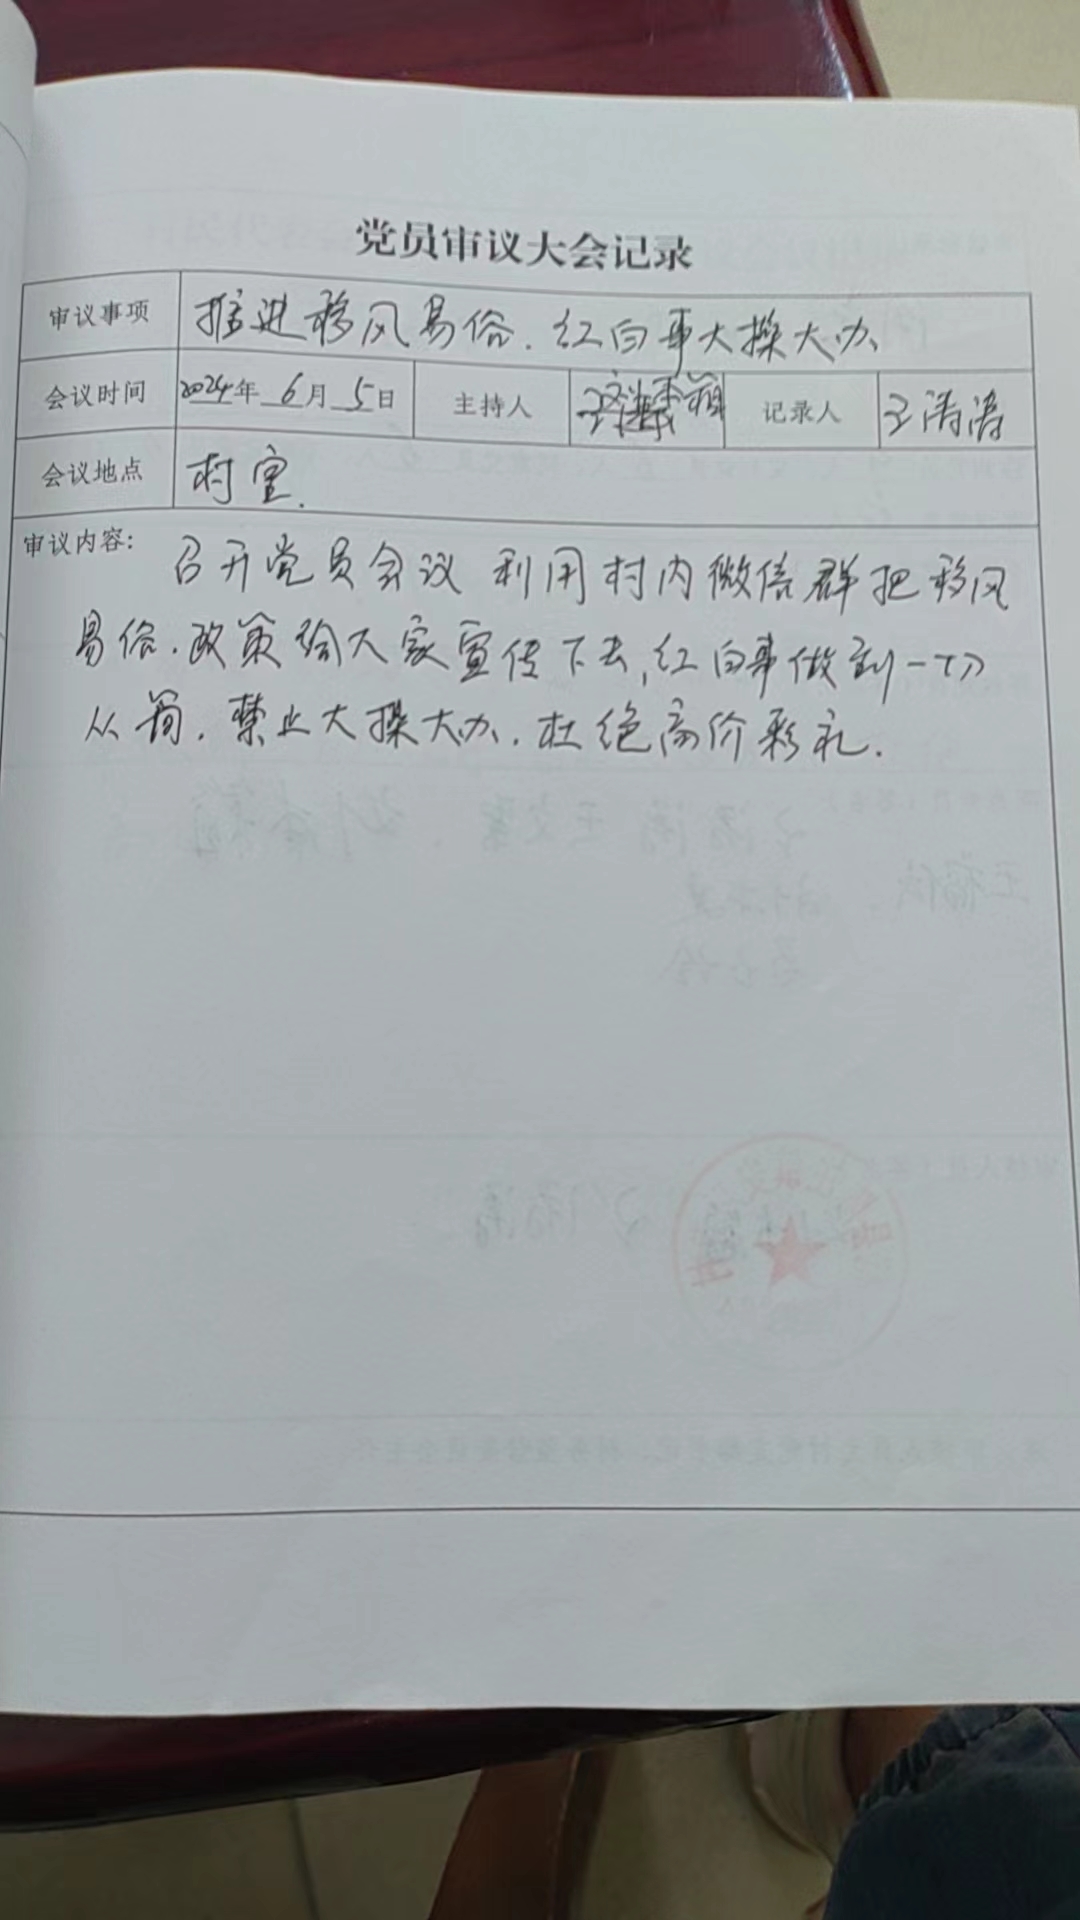 党员审议大会记录
审议事项 推进移风易俗.红白事大操大办、
会议时间 2024年 6月 5日 主持人 记录人 王涛涛
会议地点 村室.
审议内容: 召开党员会议 利用村内微信群把移风
易俗.政策给大家宣传下去,红白事做到一切
从简.禁止大操大办.杜绝高价彩礼.